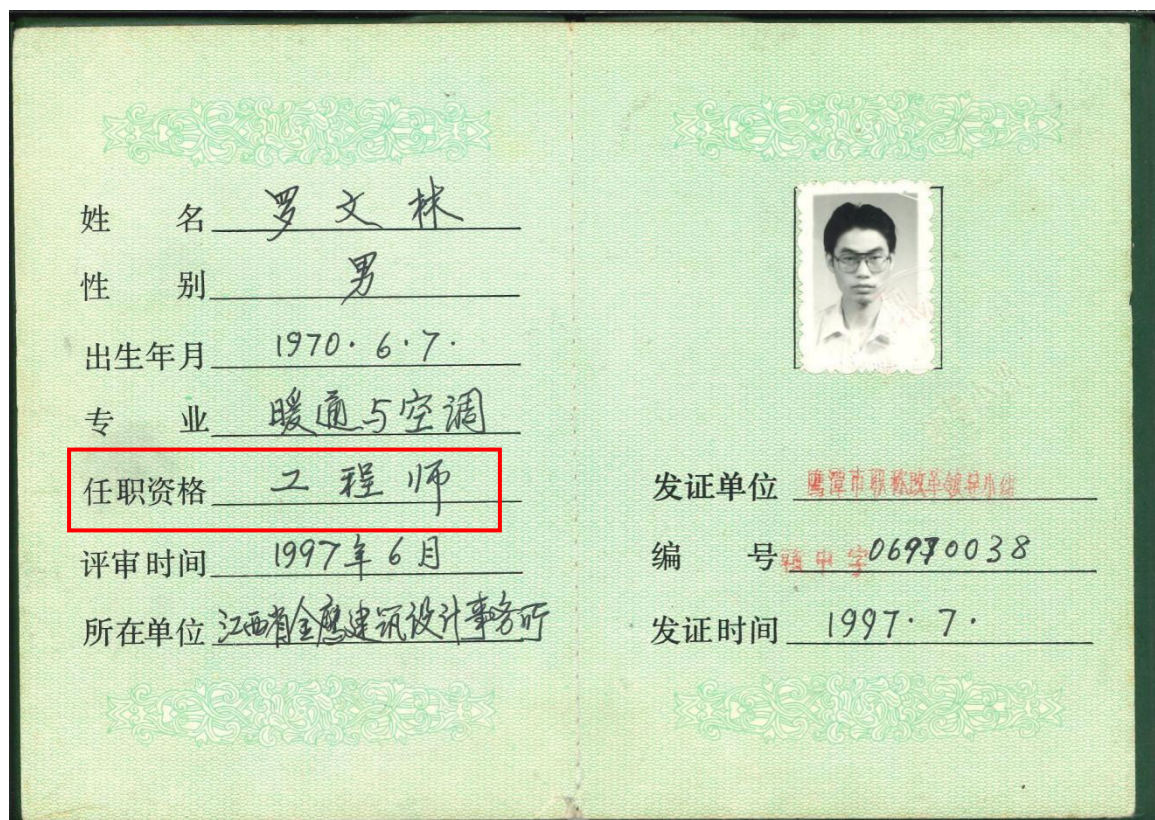 姓 名 罗文林
性 别 男
出生年月 1970·6·7·
专 业 暖通与空调
任职资格 工程师
评审时间 1997年6月
所在单位 江西省金鹰建筑设计事务所
发证单位 鹰潭市职称改革领导小组
编 号 中字06970038
发证时间 1997·7·